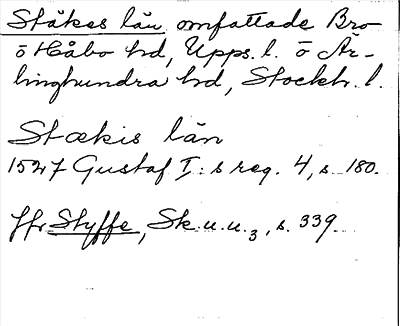 Stäkes län omfattade Bro-
o Håbo hd, Upps. l. o Är-
linghundra hd, Stockh. l.
Stækis län
1527 Gustaf I:s reg. 4, s. 180.
Jfr Styffe, Sk. u. u. 3, s. 339.